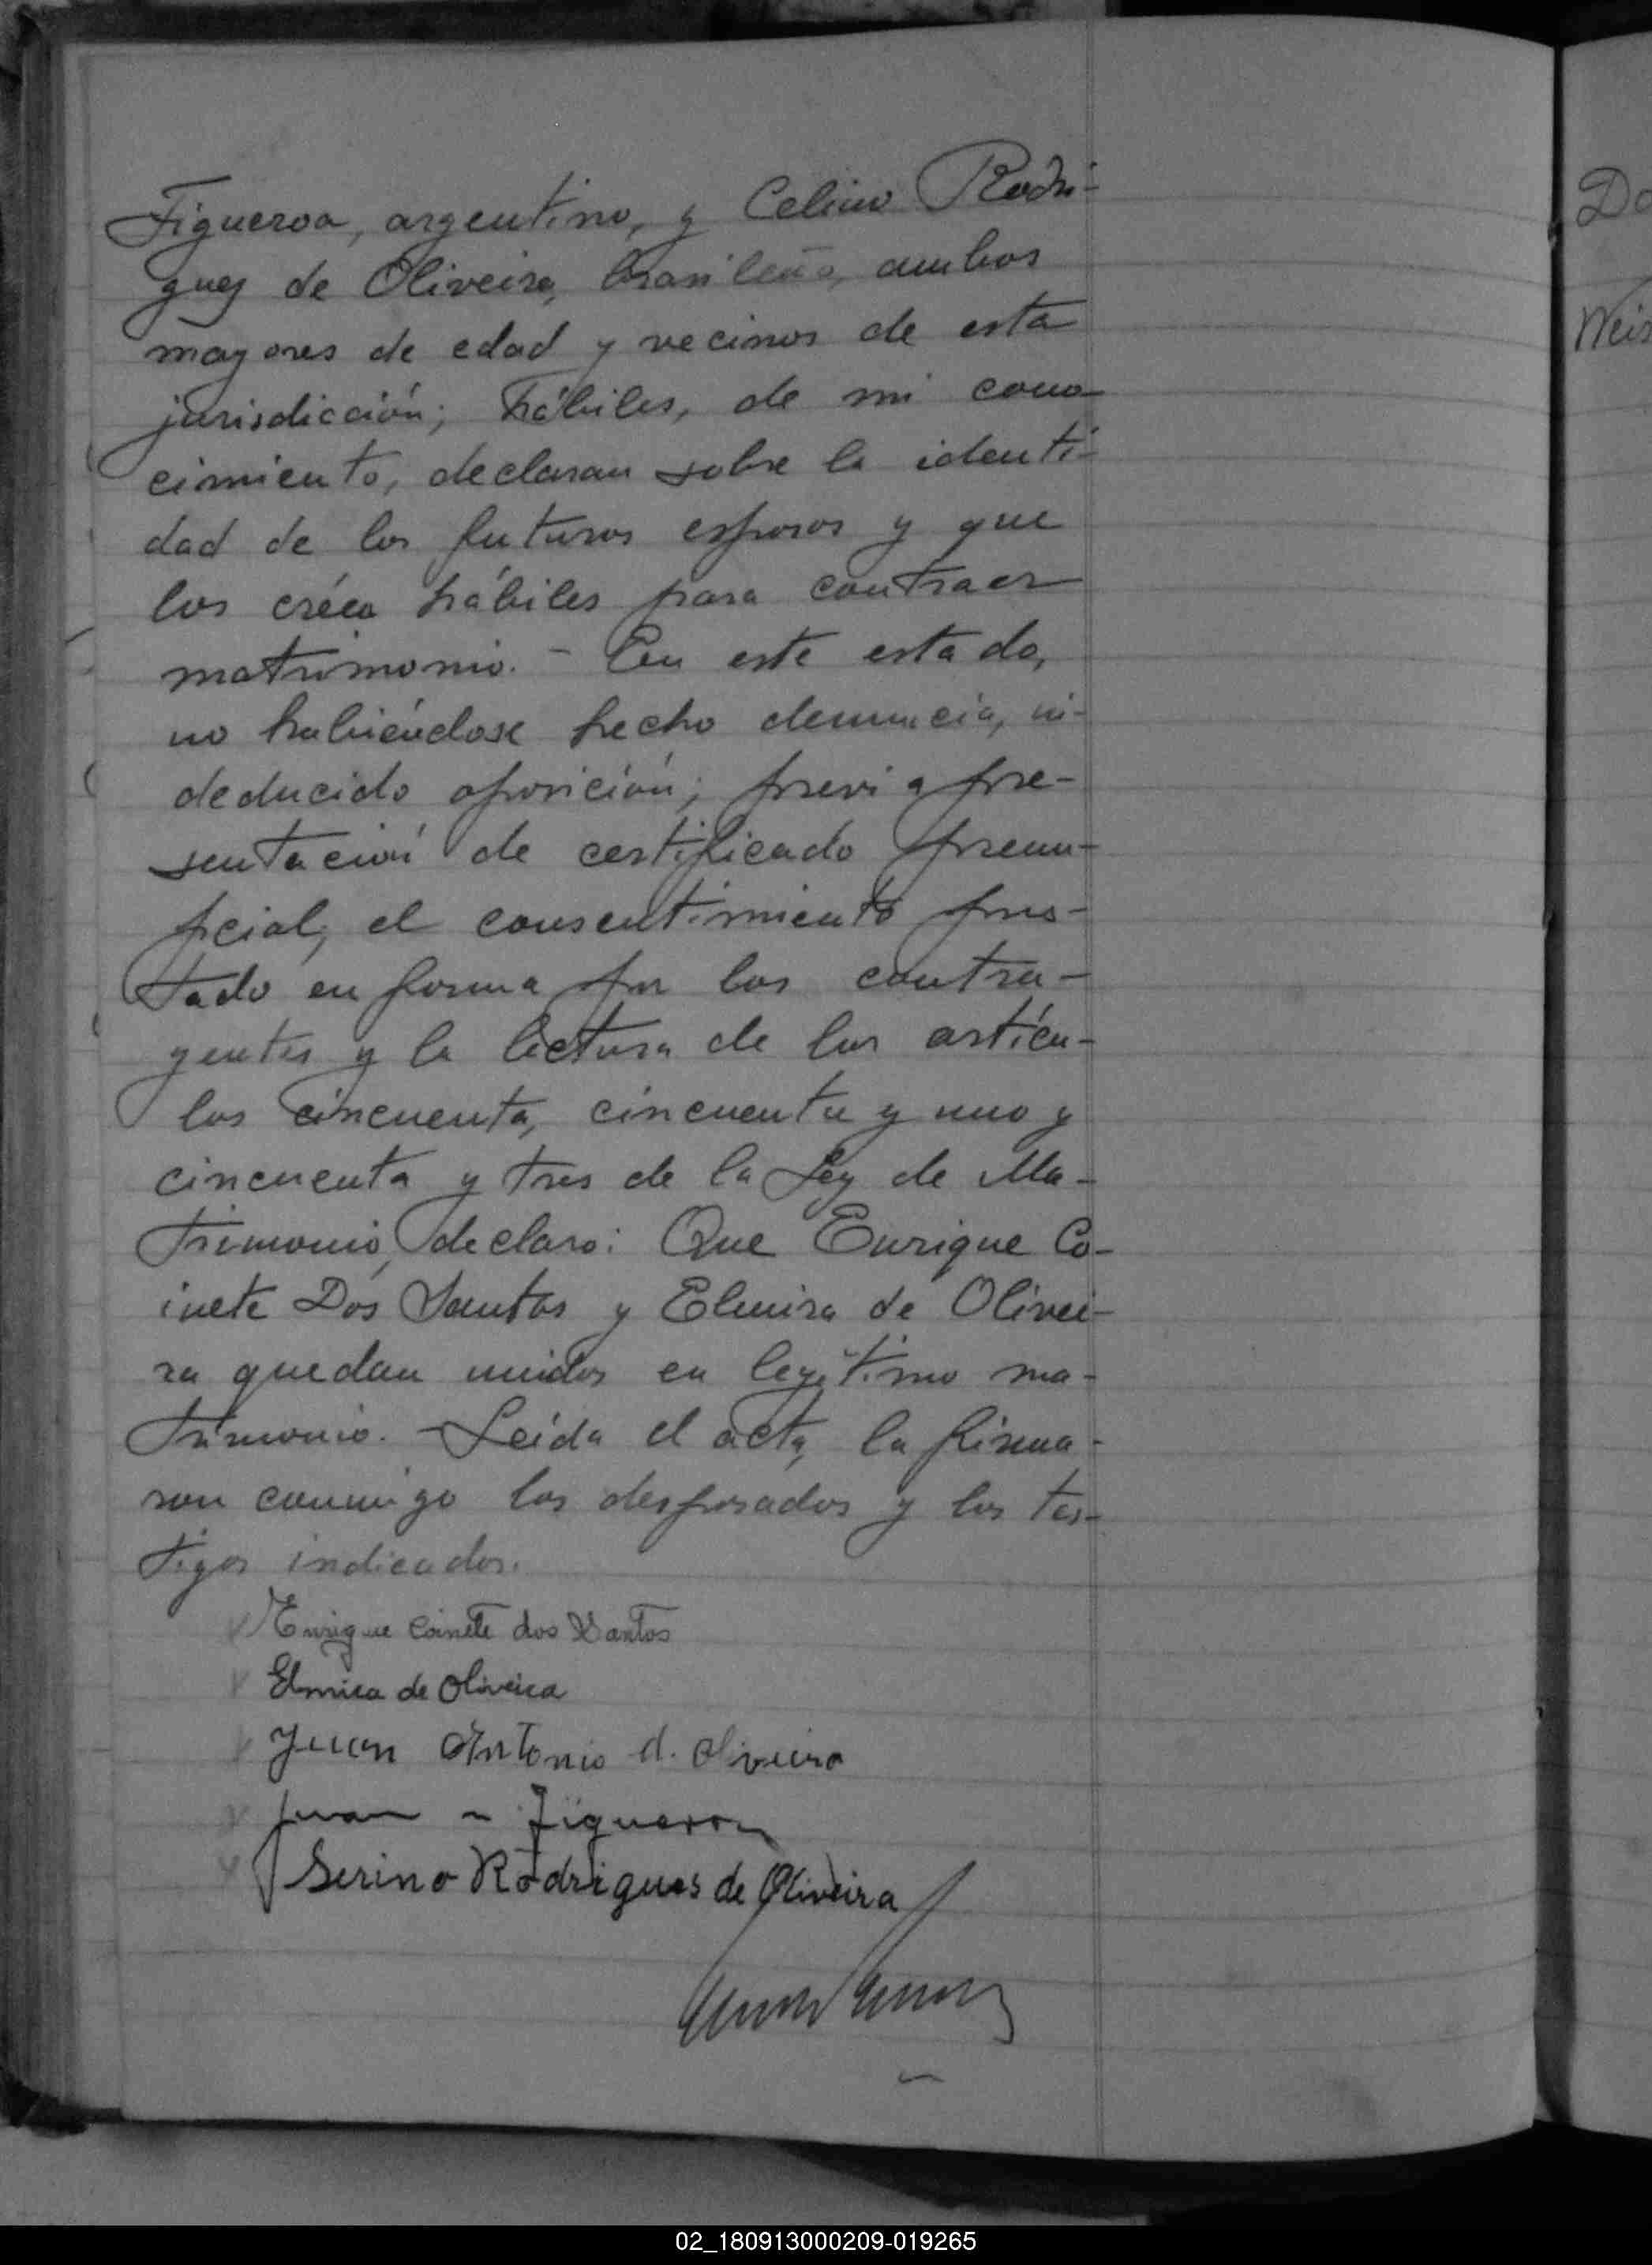 Figueroa, argentino, y Celino Rodrí-
guez de Oliveira, brasileño, ambos
mayores de edad y vecinos de esta
jurisdicción; hábiles, de mi cono-
cimiento, declaran sobre la identi-
dad de los futuros esposos y que
los créen hábiles para contraer
matrimonio. - En este estado,
no habiéndose hecho denuncia, ni
deducido oposición; previa pre-
sentación de certificado prenu-
pcial, el consentimiento pres-
tado en forma por los contra-
yentes y la lectura de los artícu-
los cincuenta, cincuenta y uno y
cincuenta y tres de la Ley de Ma-
trimonio, declaro: Que Enrique Co-
inete Dos Santos y Elmira de Olivei-
ra quedan unidos en legítimo ma-
trimonio. - Leída el acta, la firma-
ron conmigo los desposados y los tes-
tigos indicados.
Enrique Coinete dos Santos
Elmira de Oliveira
Juan Antonio d. Oliveira
Juan Figueroa
Serino Rodrigues de Oliveira
Do
Weis
02_180913000209-019265